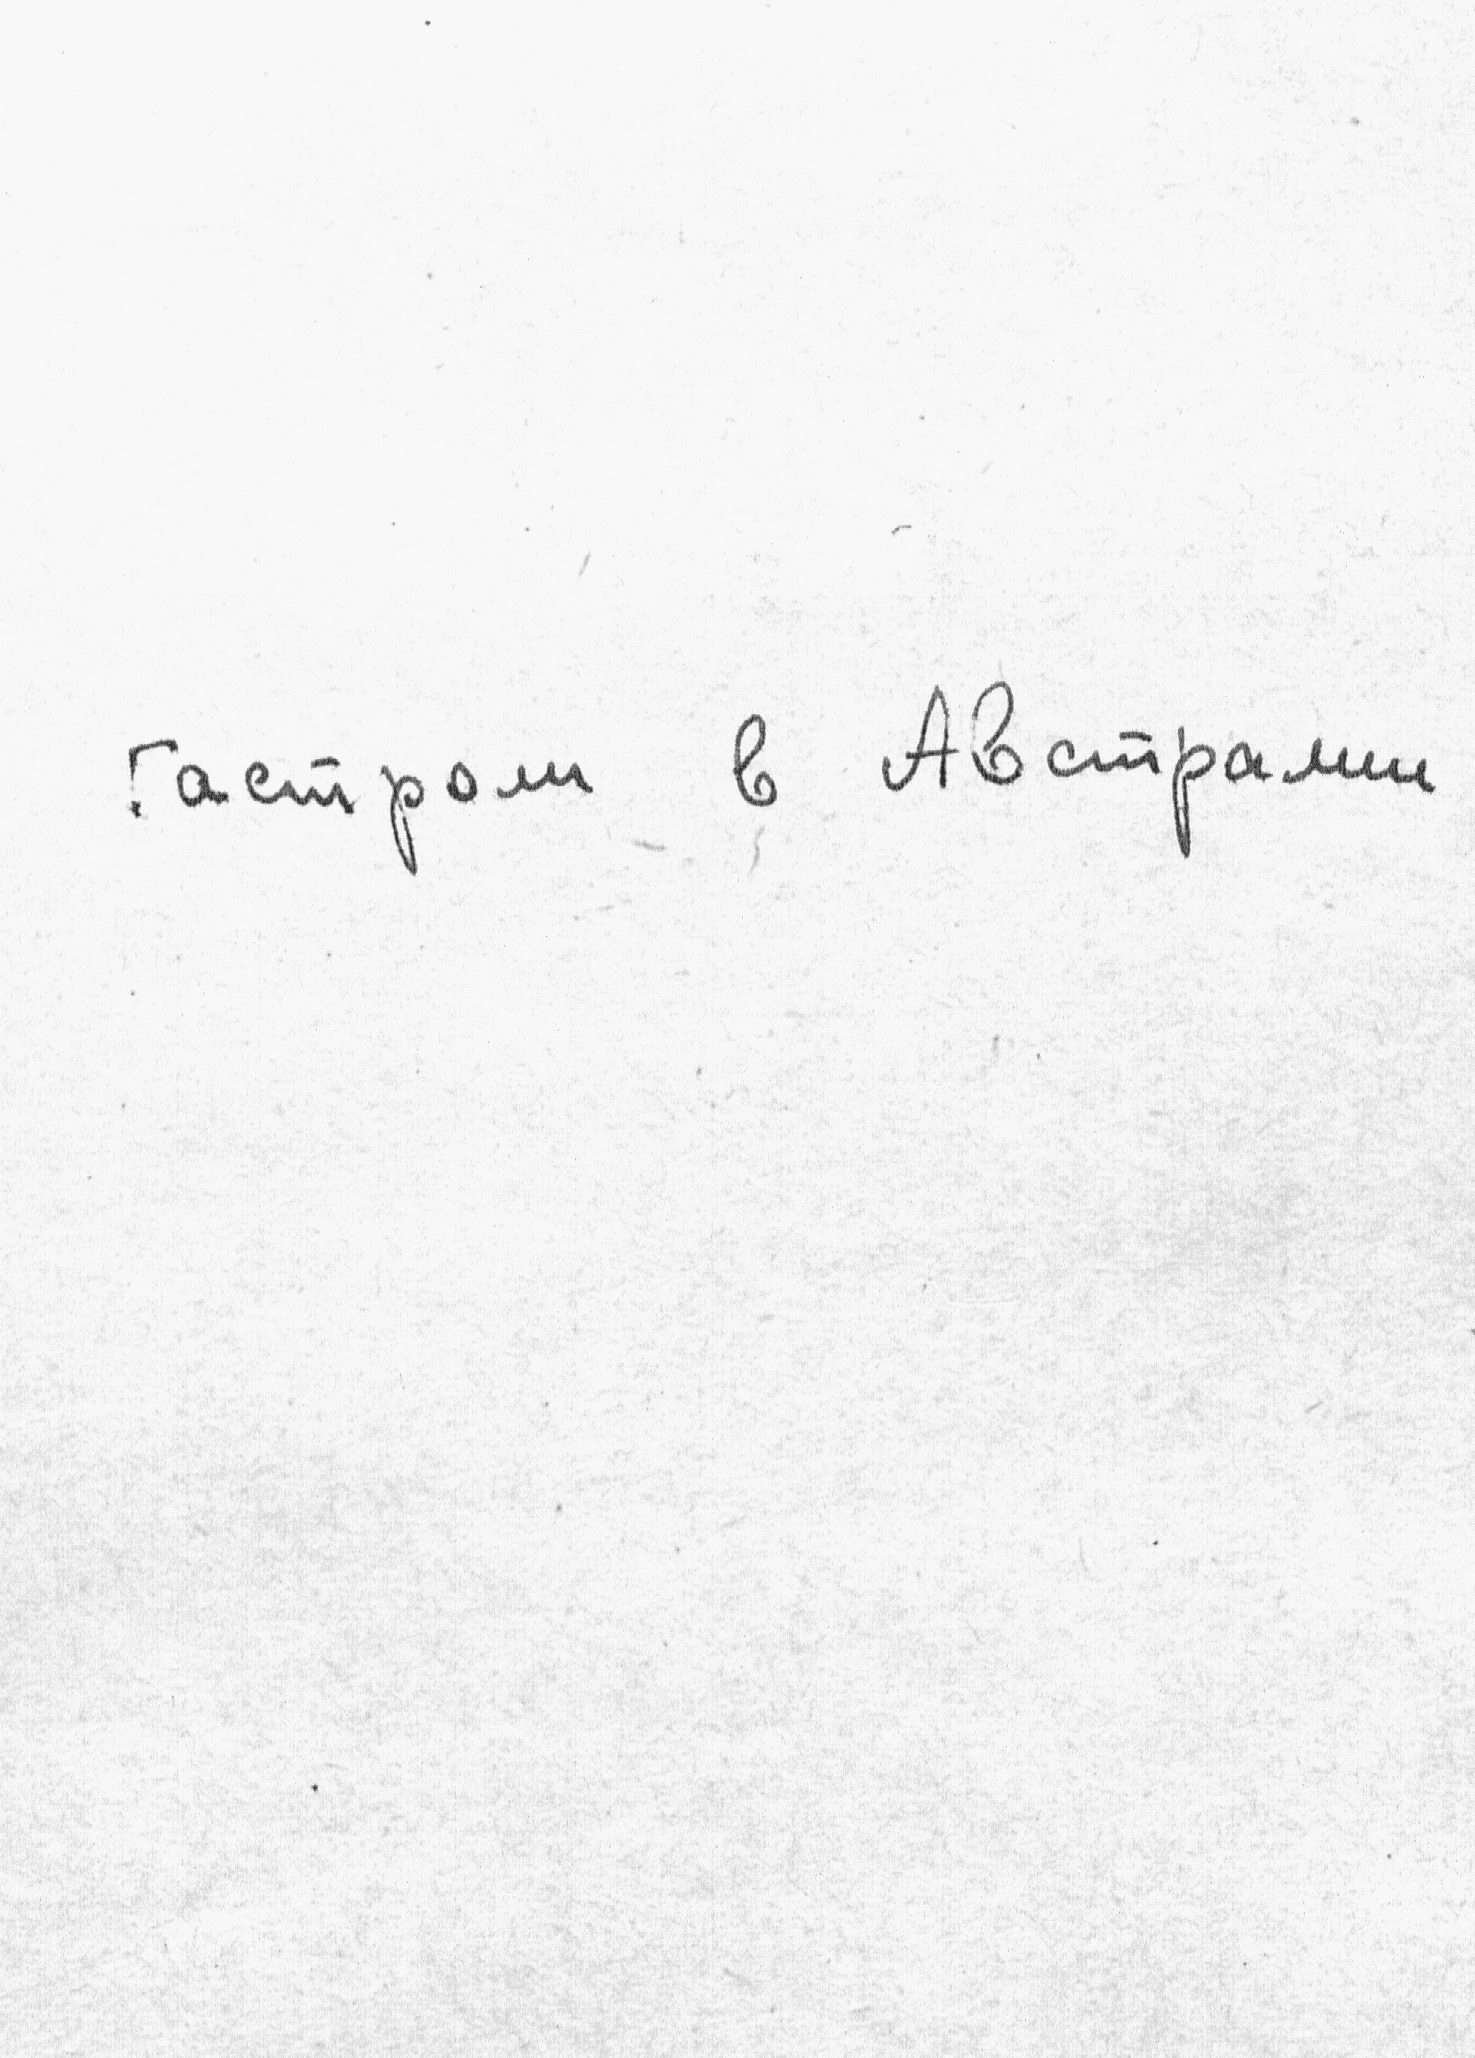 Гастроли в Австралии